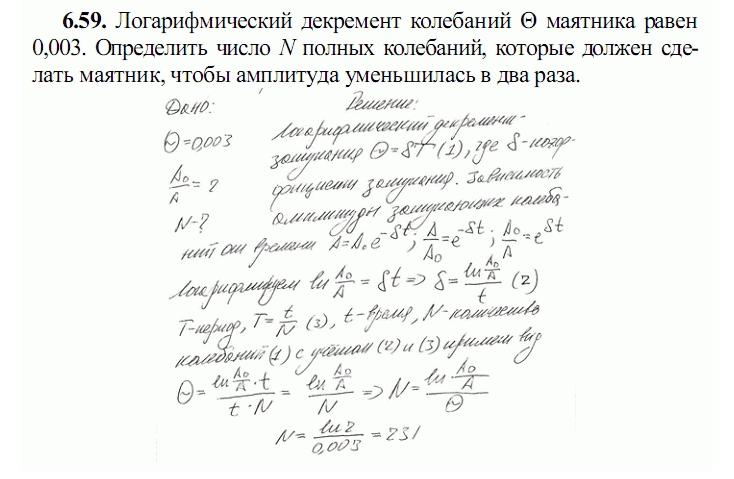 6.59. Логарифмический декремент колебаний Θ маятника равен
0,003. Определить число N полных колебаний, которые должен сде-
лать маятник, чтобы амплитуда уменьшилась в два раза.
Дано: Решение:
Θ=0,003 Логарифмический декремент-
затухания Θ=δT (1), где δ-коэф-
A₀/A = 2 фициент затухания. Зависимость
N-? амплитуды затухающих колеба-
ний от времени A=A₀e^(-δt); A/A₀=e^(-δt); A₀/A=e^(δt)
Логарифмируем ln A₀/A = δt => δ = (ln A₀/A)/t (2)
T-период, T=t/N (3), t-время, N-количество
колебаний (1) с учётом (2) и (3) примет вид
Θ = (ln A₀/A · t)/(t · N) = (ln A₀/A)/N => N = (ln A₀/A)/Θ
N = ln 2/0,003 = 231